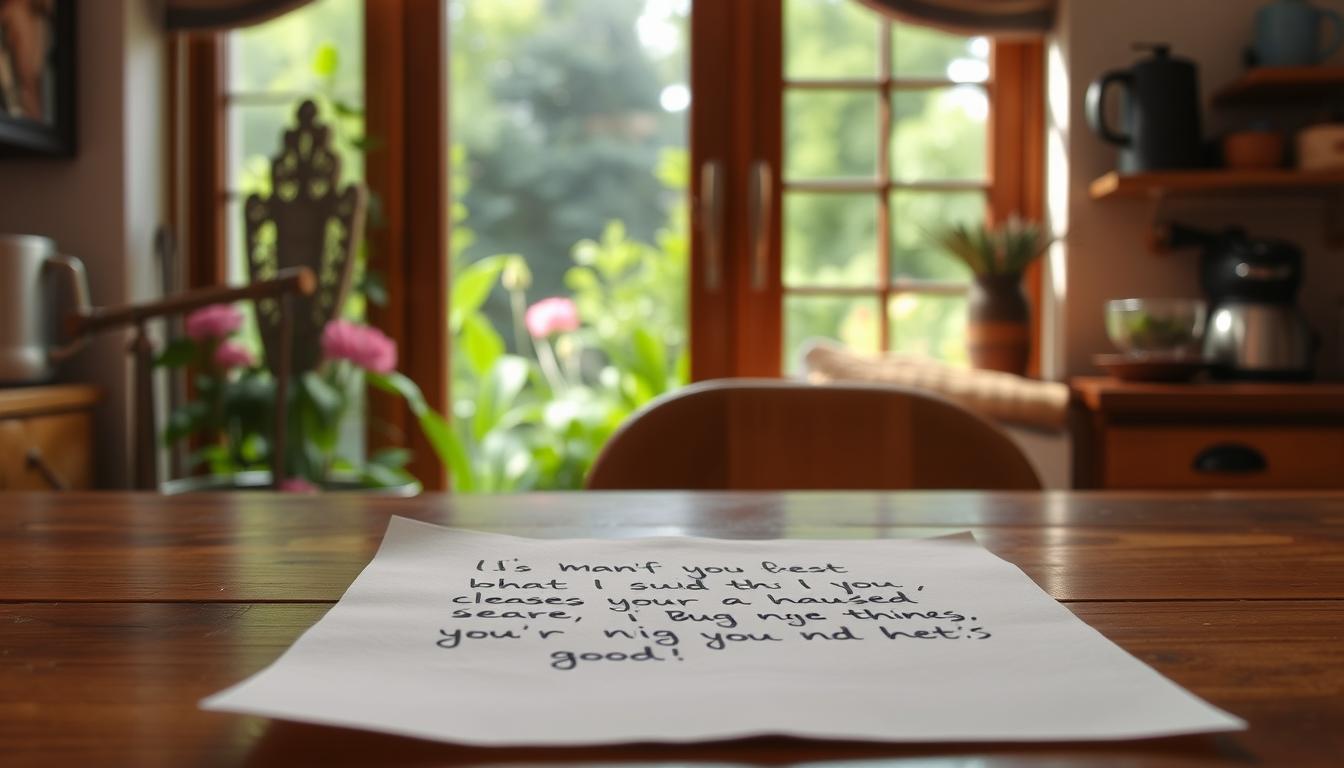 It's man'f you best
bhat I swd thi I you,
cleases your a haused
seare, i Bug nge thines.
you'r nig you nd het's
good!